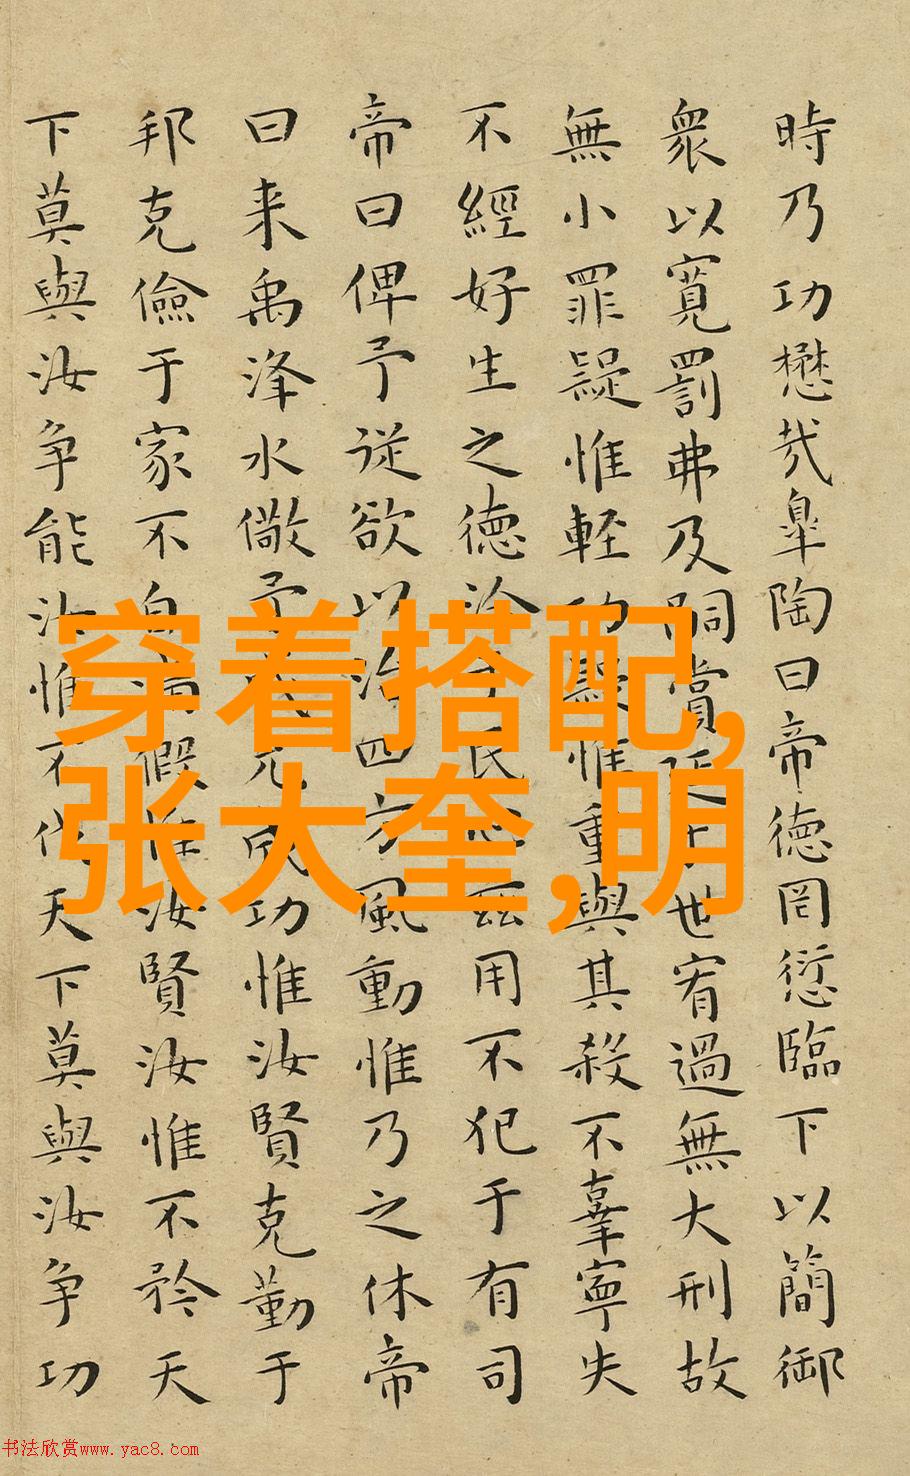 時乃功懋哉皐陶曰帝徳罔愆臨下以簡御
衆以寛罰弗及嗣賞延于世宥過無大刑故
無小罪疑惟軽功疑惟重與其殺不辜寧失
不經好生之徳洽于民心兹用不犯于有司
帝曰俾予従欲以治四方風動惟乃之休帝
曰来禹洚水儆予成允成功惟汝賢克勤于
邦克儉于家不自滿假惟汝賢汝惟不矜天
下莫與汝争能汝惟不伐天下莫與汝争功
穿着搭配,
张大奎,明
书法欣赏www.yac8.com